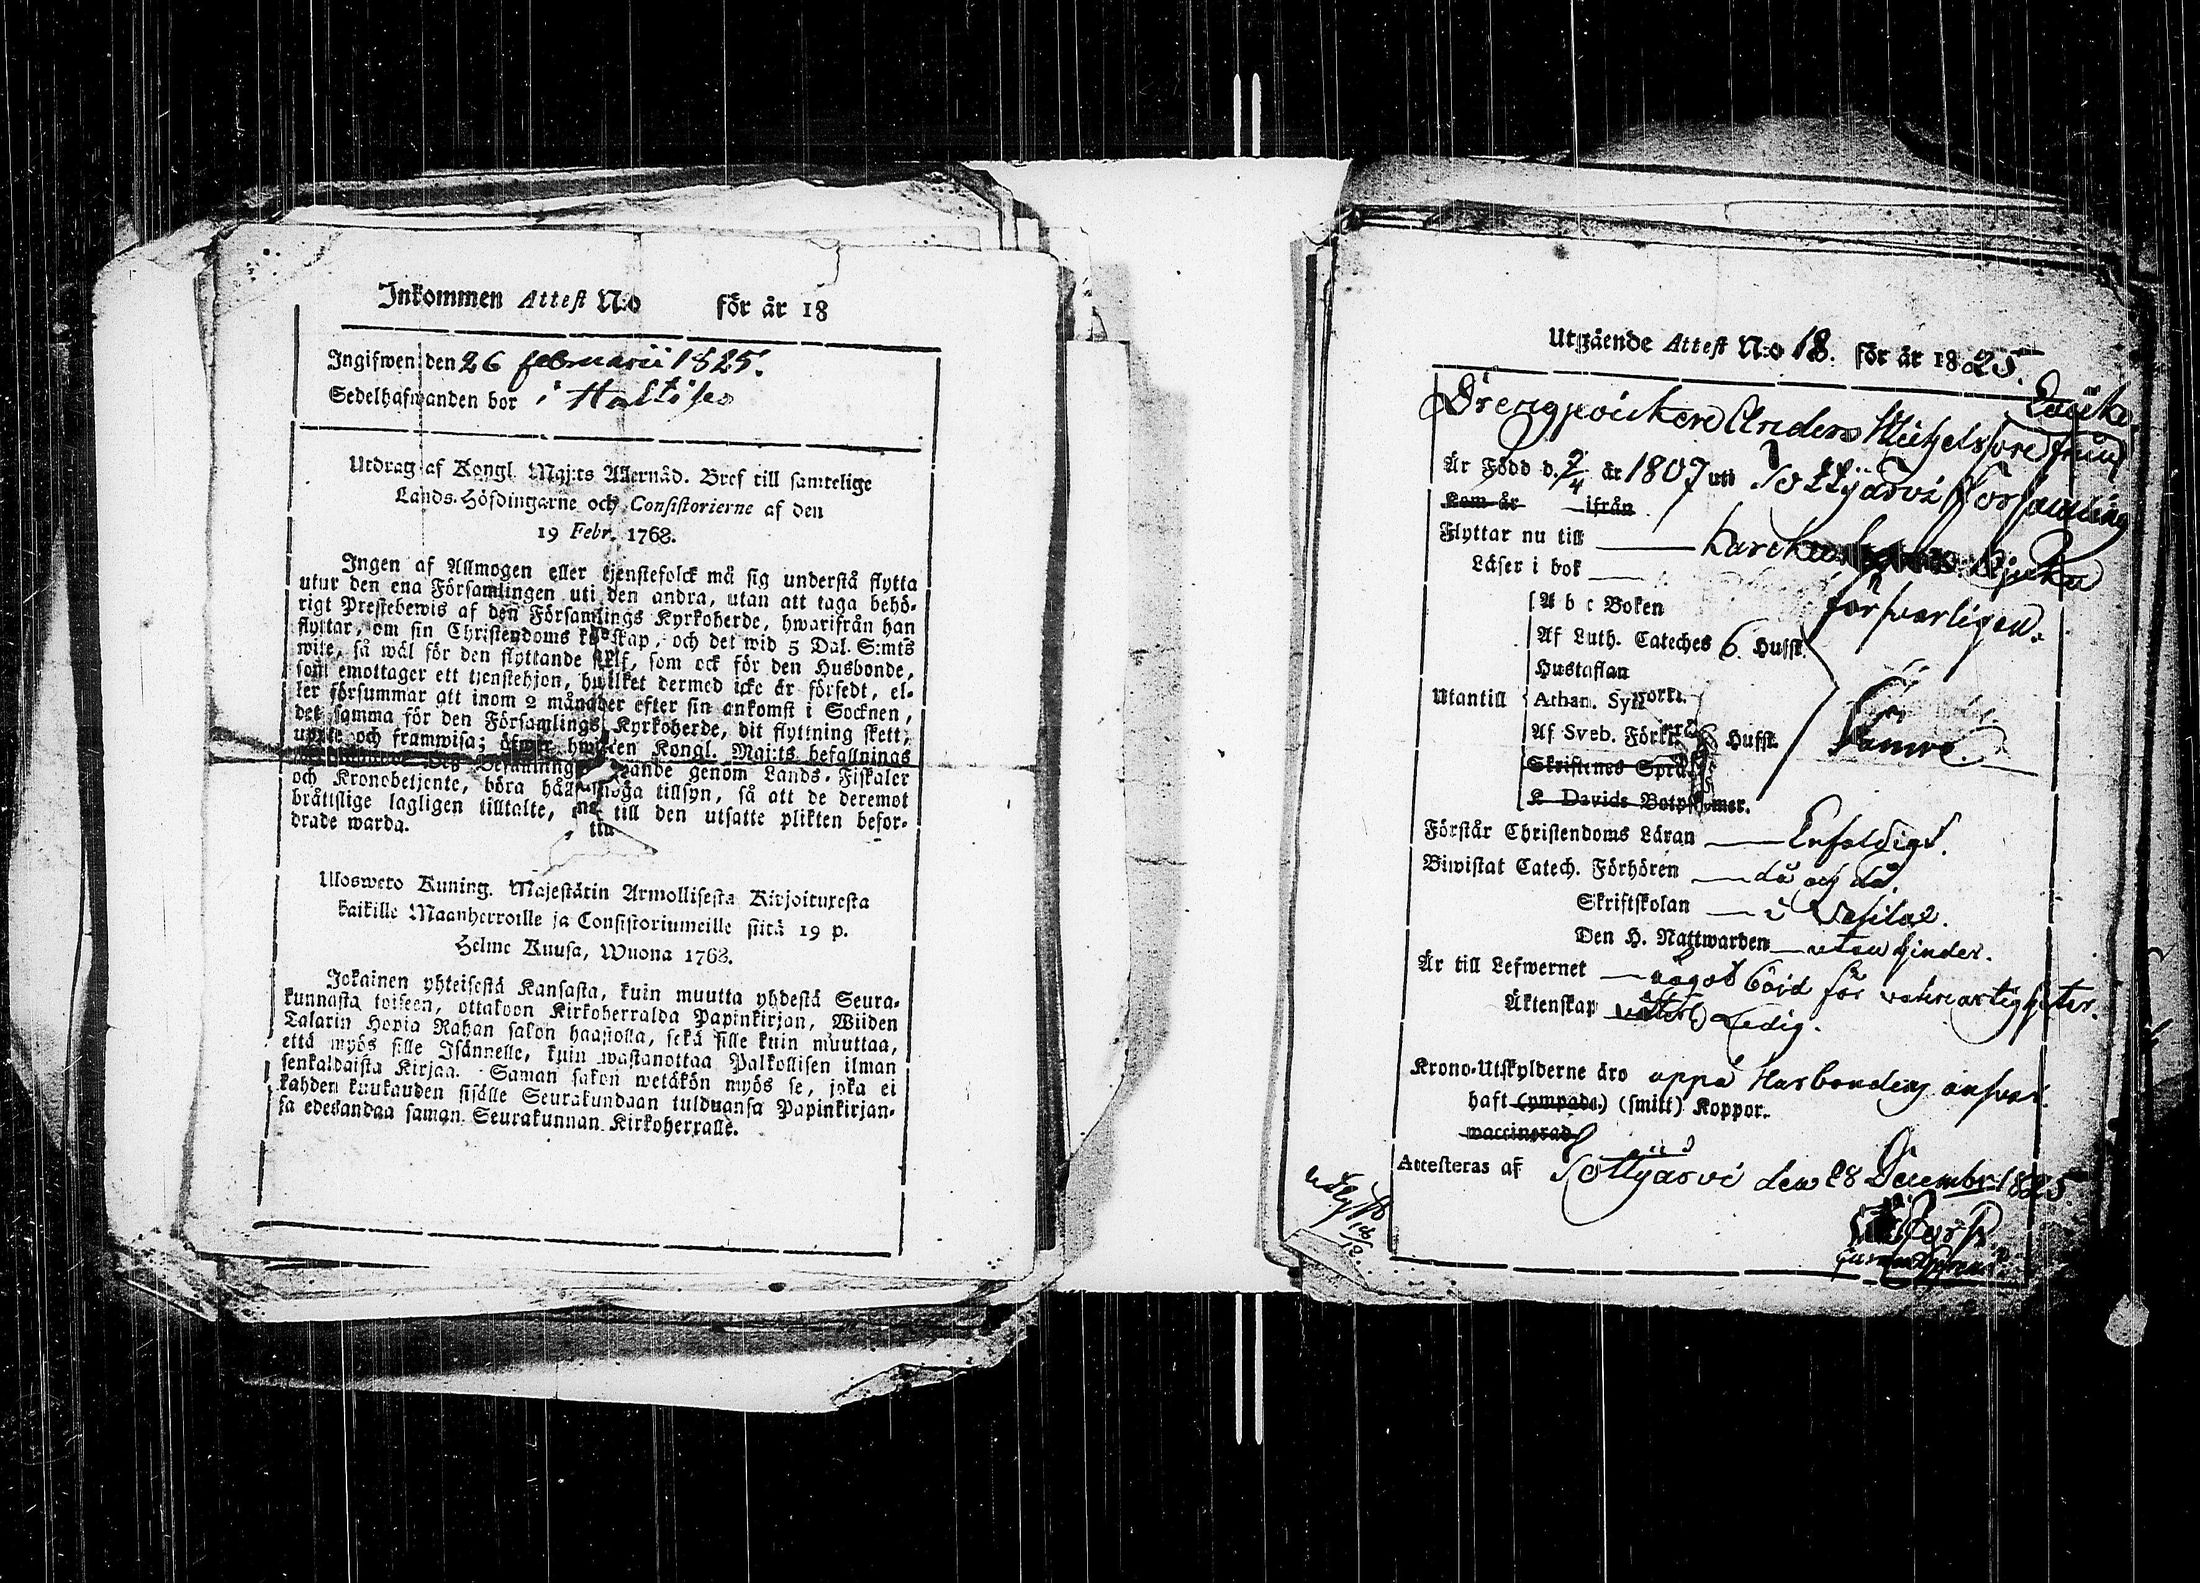 Inkommen Attest N:o för år 18
Ingifwen den 26 februarii 1825.
Sedelhafwanden bor i
Utdrag af Kongl. Maj:ts Allernåd. Bref till samtelige
Lands-Höfdingarne och Consistorierne af den
19 Febr. 1768.
Ingen af Allmogen eller tjenstefolck må sig understå flytta
utur den ena Församlingen uti den andra, utan att taga behö-
rigt Prestebewis af den Församlings Kyrkoherde, hwarifrån han
flyttar, om sin Christendoms kunskap, och det wid 5 Dal. S:mts
wite, så wäl för den flyttande sjelf, som ock för den Husbonde,
som emottager ett tjenstehjon, hwilket dermed icke är försedt, el-
ler försummar att inom 2 månader efter sin ankomst i Socknen,
det samma för den Församlings Kyrkoherde, dit flyttning skett,
upte och framwisa; hwaren Kongl. Maj:ts befallnings
genom Lands-Fiskaler
och Kronobetjente, böra noga tillsyn, så att de deremot
bråttslige lagligen tilltalte, till den utsatte plikten befor-
drade warda.
Uloswero Kuning. Majestätin Armollisesta Kirjoituxesta
kaikille Maanherroille ja Consistoriumeille siitä 19 p.
Helme Kuusa, Wuona 1768.
Jokainen yhteisestä Kansasta, kuin muutta yhdestä Seura-
kunnasta toiseen, ottakoon Kirkoherralda Papinkirjan, Wiiden
Talarin Hopia Rahan sakon haastolla, sekä sille kuin muuttaa,
että myös sille Isännelle, kuin wastanottaa Palkollisen ilman
senkaldaista Kirjaa. Saman sakon wetäkön myös se, joka ei
kahden kuukauden sisälle Seurakundaan tulduansa Papinkirjan-
sa edesandaa saman Seurakunnan Kirkoherralle.
Utgående Attest N:o 18. för år 1825.
Drengpoiken Anders Michelsson
från
Är Född d. 9/4 år 1807 uti Jo Församling
Kom år ifrån
Flyttar nu till
Läser i bok försvarligen.
A b c Boken
Af Luth. Cateches 6 Hufst.
Hustaflan
Utantill Athan. Symb.
Af Sveb. Förkl. Hufst.
Skriftenes Språk
K Davids Botpsalmer.
Förstår Christendoms Läran Enfaldigt.
Biwistat Catech. Förhören då och då.
Skriftskolan i
Den H. Nattwarden utan hinder.
Är till Lefwernet något
Äktenskap Ledig.
Krono-Utskylderne äro uppå Husbondens answar.
haft (ympade) (smitt) Koppor.
waccinerad
Attesteras af den 28 December 1825